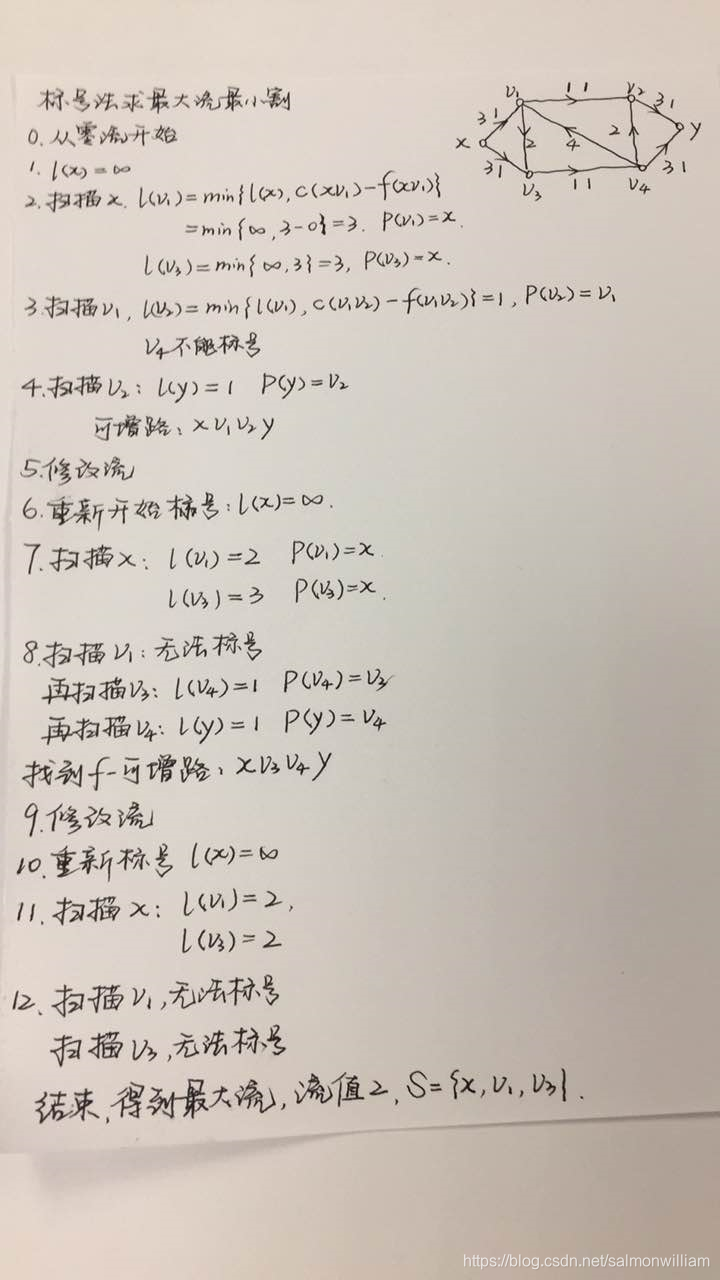 标号法求最大流最小割
0. 从零流开始
1. l(x)=∞
2. 扫描x. l(v₁)=min{l(x), c(xv₁)-f(xv₁)}
=min{∞, 3-0}=3. P(v₁)=x.
l(v₃)=min{∞,3}=3, P(v₃)=x.
3. 扫描v₁, l(v₂)=min{l(v₁), c(v₁v₂)-f(v₁v₂)}=1, P(v₂)=v₁
v₄不能标号
4. 扫描v₂: l(y)=1 P(y)=v₂
可增路: xv₁v₂y
5. 修改流
6. 重新开始标号: l(x)=∞.
7. 扫描x: l(v₁)=2 P(v₁)=x
l(v₃)=3 P(v₃)=x.
8. 扫描v₁: 无法标号
再扫描v₃: l(v₄)=1 P(v₄)=v₃
再扫描v₄: l(y)=1 P(y)=v₄
找到f-可增路: xv₃v₄y
9. 修改流
10. 重新标号 l(x)=∞
11. 扫描x: l(v₁)=2,
l(v₃)=2
12. 扫描v₁, 无法标号
扫描v₃, 无法标号
结束, 得到最大流, 流值2, S={x, v₁, v₃}.
v₁ 11 v₂
31 31
x 2 4 2 y
31 31
v₃ 11 v₄
https://blog.csdn.net/salmonwilliam